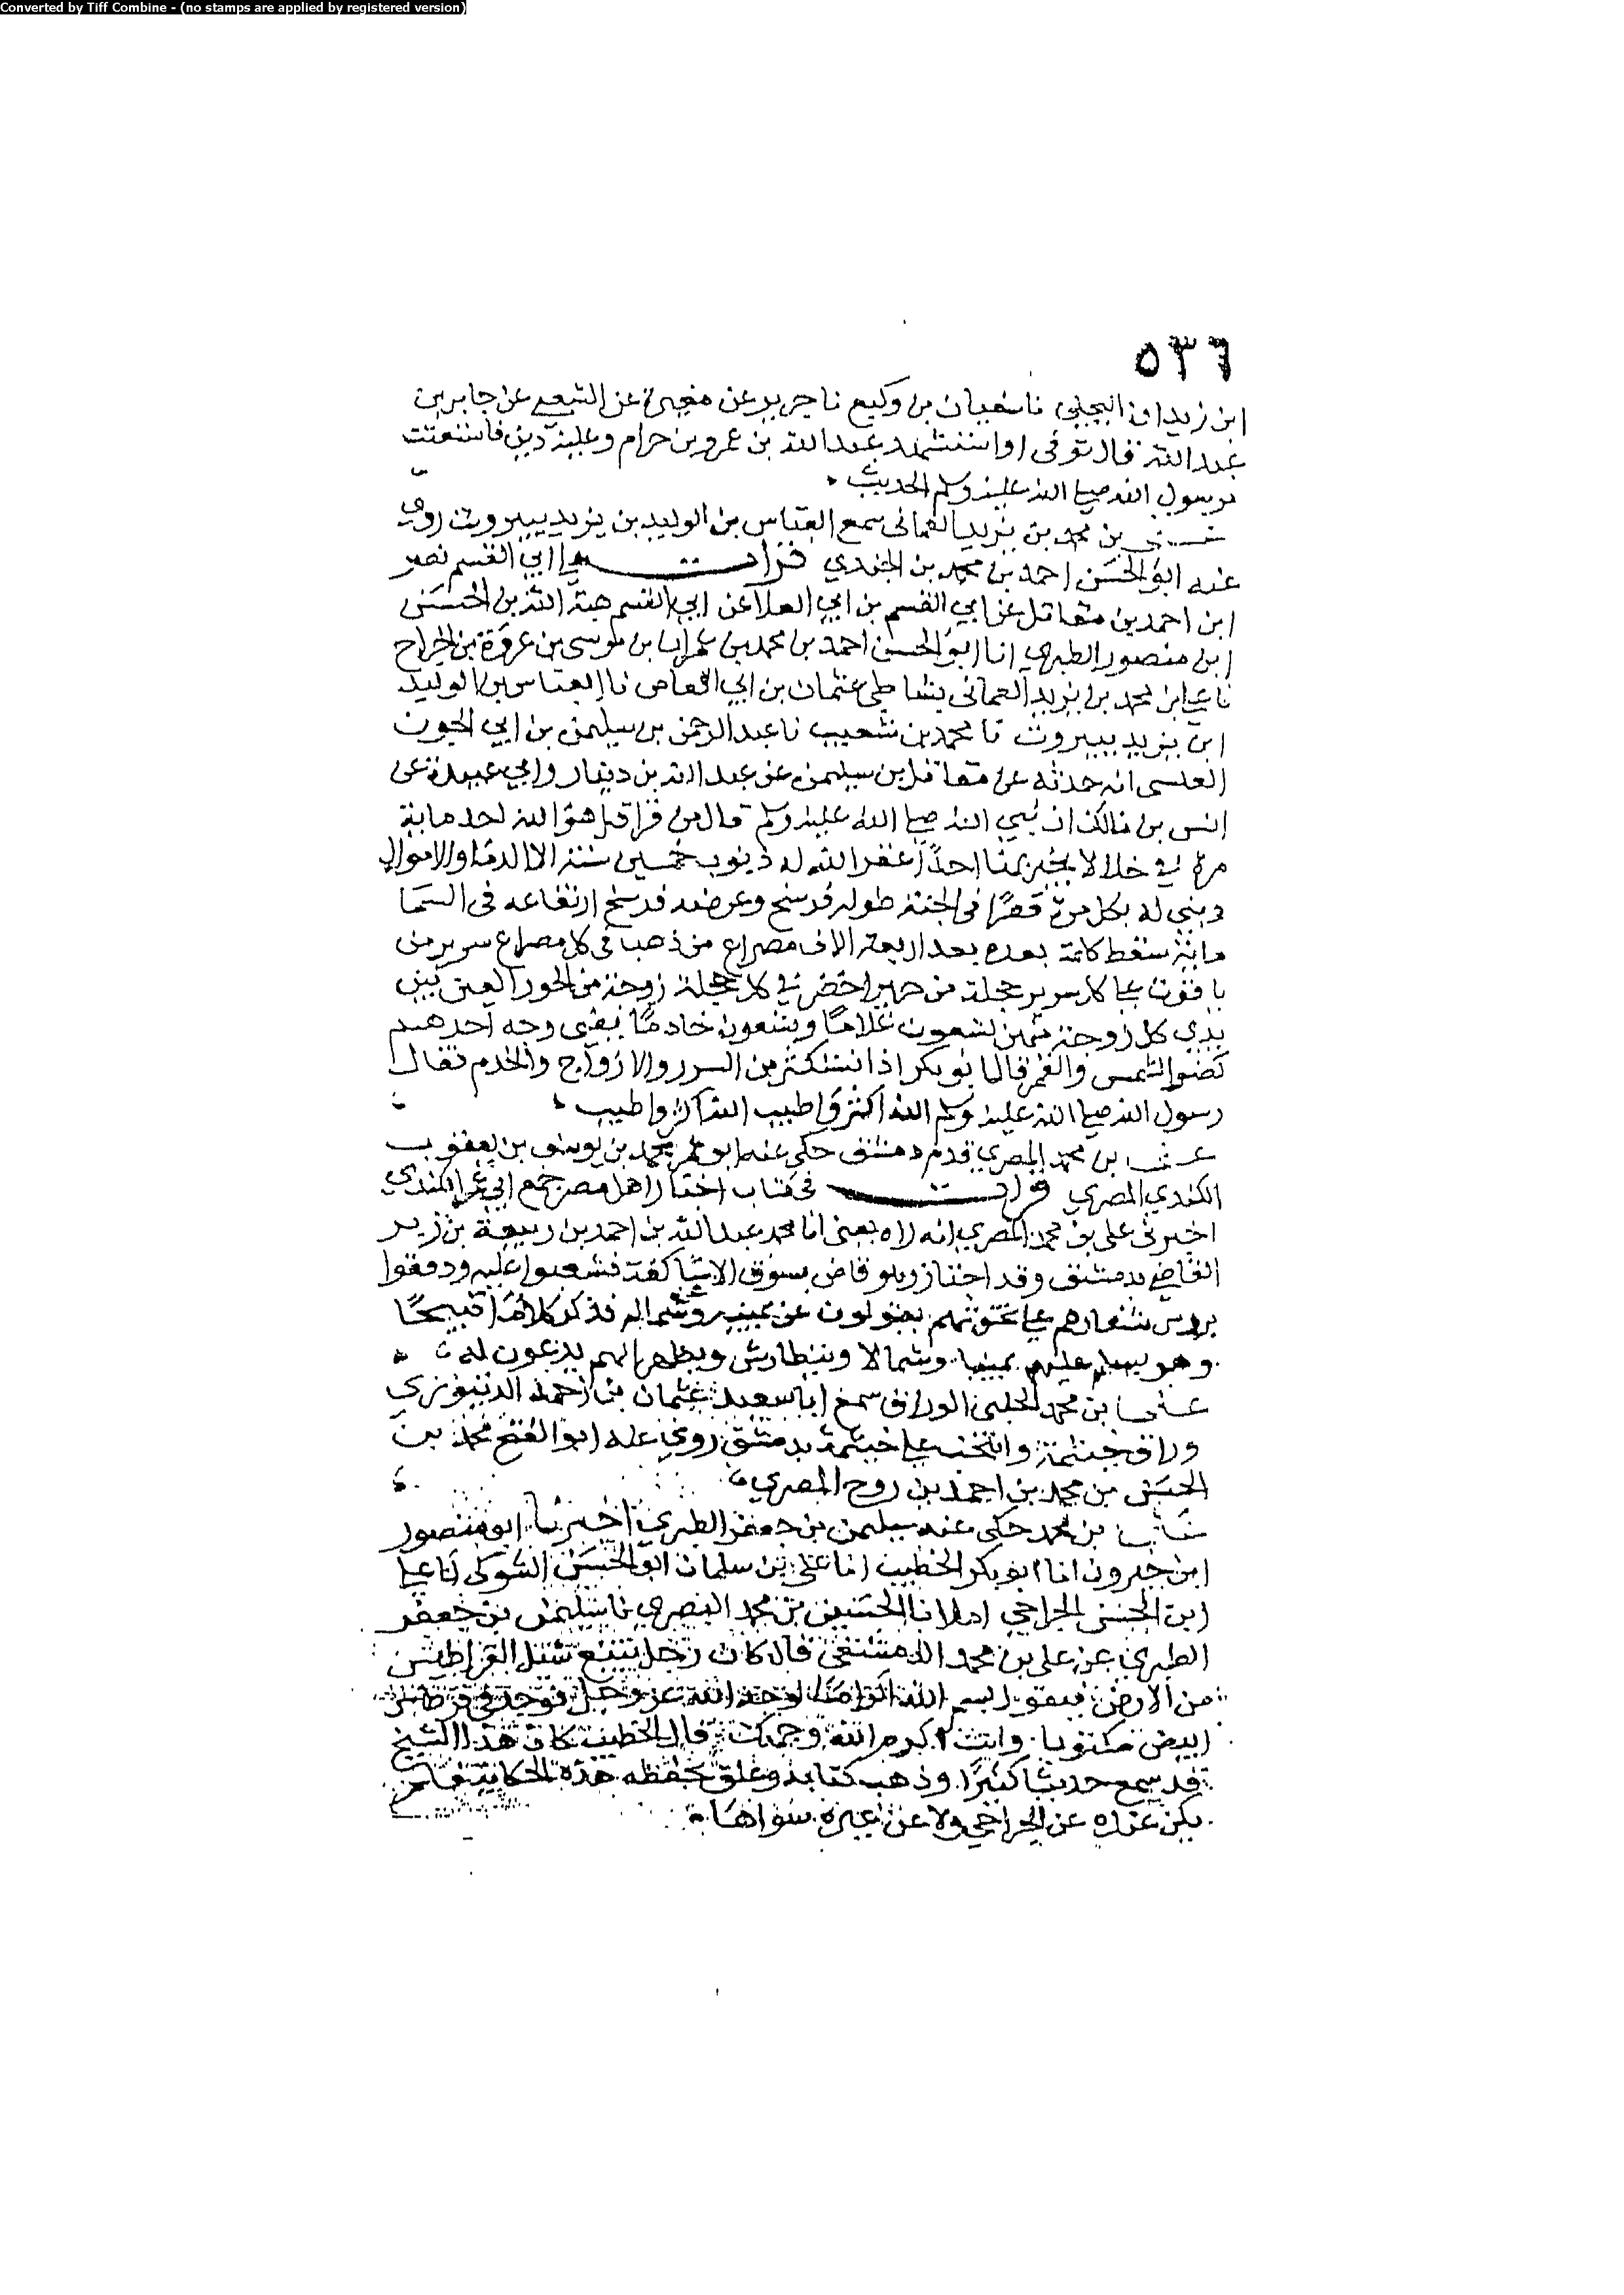 Converted by Tiff Combine - (no stamps are applied by registered version)
٥٣٦
ابن زيدان البجلي نا سفيان بن وكيع نا جرير عن مغيرة عن الشعبي عن جابر بن
عبد الله قال توفى او استشهد عبد الله بن عمرو بن حرام وعليه دين فاستعنت
برسول الله صلى الله عليه وسلم الحديث
علي بن محمد بن يزيد العماني سمع العباس بن الوليد بن يزيد ببيروت روى
عنه ابو الحسن احمد بن محمد بن الجندي قرات على ابي القسم نصر
ابن احمد بن مقاتل عن ابي القسم بن ابي العلا عن ابي القسم هبة الله بن الحسن
ابن منصور الطبري انا ابو الحسن احمد بن محمد بن عمران بن موسى بن عروة بن الجراح
نا علي بن محمد بن يزيد العماني بشاطي عثمان بن ابي العاص نا العباس بن الوليد
ابن يزيد ببيروت نا محمد بن شعيب نا عبد الرحمن بن سليمن بن ابي الجون
العنسى انه حدثه عن مقاتل بن سليمن عن عبد الله بن دينار وابي عبيدة عن
انس بن مالك ان نبي الله صلى الله عليه وسلم قال من قرا قل هو الله احد ماية
مرة في خلا لا يخبر بها احدًا غفر الله له ذنوب خمسين سنة الا الدما والاموال
وبني له بكل مرة قصرًا في الجنة طوله فرسخ وعرضه فرسخ ارتفاعه في السما
بعده بعد اربعة الاف مصراع من ذهب في كل مصراع سرير من
ياقوت على كل سرير حجلة من حرير اخضر في كل حجلة زوجة من الحور العين بين
يدي كل زوجة منهن تسعون غلامًا وتسعون خادمًا وجه احدهم
كضو الشمس والقمر قال ابو بكر اذا نستكثر من السرر والازواج والخدم فقال
رسول الله صلى الله عليه وسلم الله اكثر واطيب الله اكثر واطيب
علي بن محمد المصري قدم دمشق حكى عنه ابو عمر محمد بن يوسف بن يعقوب
الكندي المصري قرات في كتاب اخبار اهل مصر جمع ابي عمر الكندي
اخبرني علي بن محمد المصري انه راه يعني ابا محمد عبد الله بن احمد بن ربيعة بن زبر
القاضي بدمشق وقد اجتاز وهو قاض بسوق الاساكفة فشغبوا عليه ودققوا
بروس شفارهم على تختهم يقولون عن يمينه وشماله فذكر كلامًا قبيحًا
وهو يسلم عليهم يمينا وشمالا ويتطارش ويظهر انهم يدعون له
علي بن محمد الحلبي الوراق سمع ابا سعيد عثمان بن احمد الدينوري
وراق خيثمة وانتخب على خيثمة بدمشق روى عنه ابو الفتح محمد بن
الحسن بن محمد بن احمد بن روح المصري
علي بن محمد حكى عنه سليمن بن جعفر الطبري اخبرنا ابو منصور
ابن خيرون انا ابو بكر الخطيب انا علي بن سلمان ابو الحسن الشوكي نا علي
ابن الحسن الجراحي املا نا الحسين بن محمد البصري نا سليمن بن جعفر
الطبري عن علي بن محمد الدمشقي قال كان رجل يتتبع القراطيس
من الارض فيقول بسم الله اكرامًا لوجه الله عز وجل فوجد في قرطاس
ابيض مكتوبا وانت اكرم الله وجهك قال الخطيب كان هذا الشيخ
قد سمع حديثا كثيرًا وذهب كتابه وعلق بحفظه هذه الحكاية فلم
يكن عنده عن الجراحي ولا عن غيره سواها